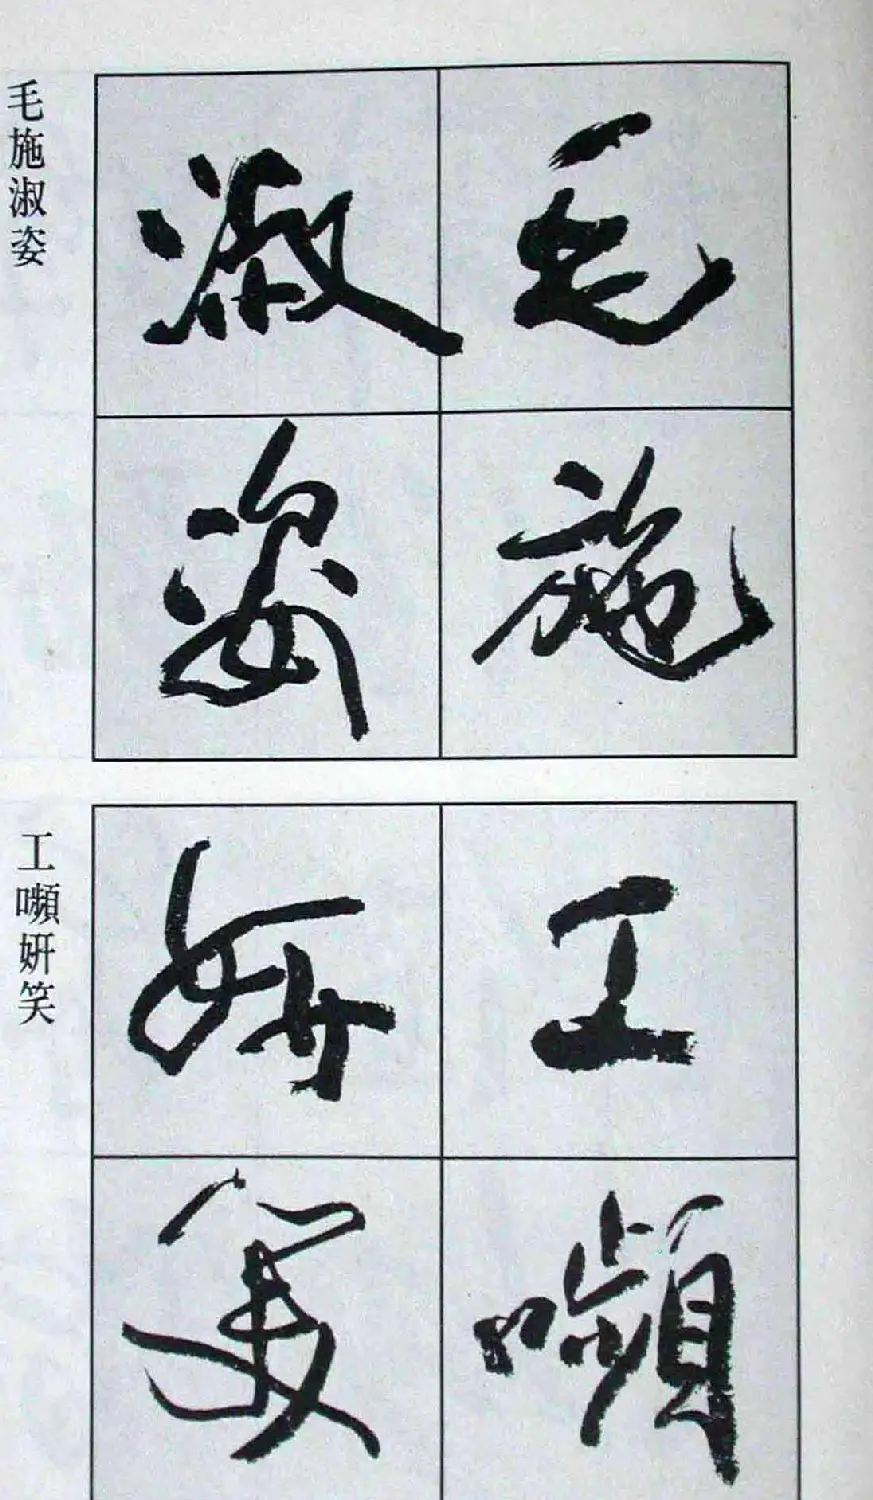 毛施淑姿
毛施
淑姿
工嚬妍笑
工嚬
妍笑